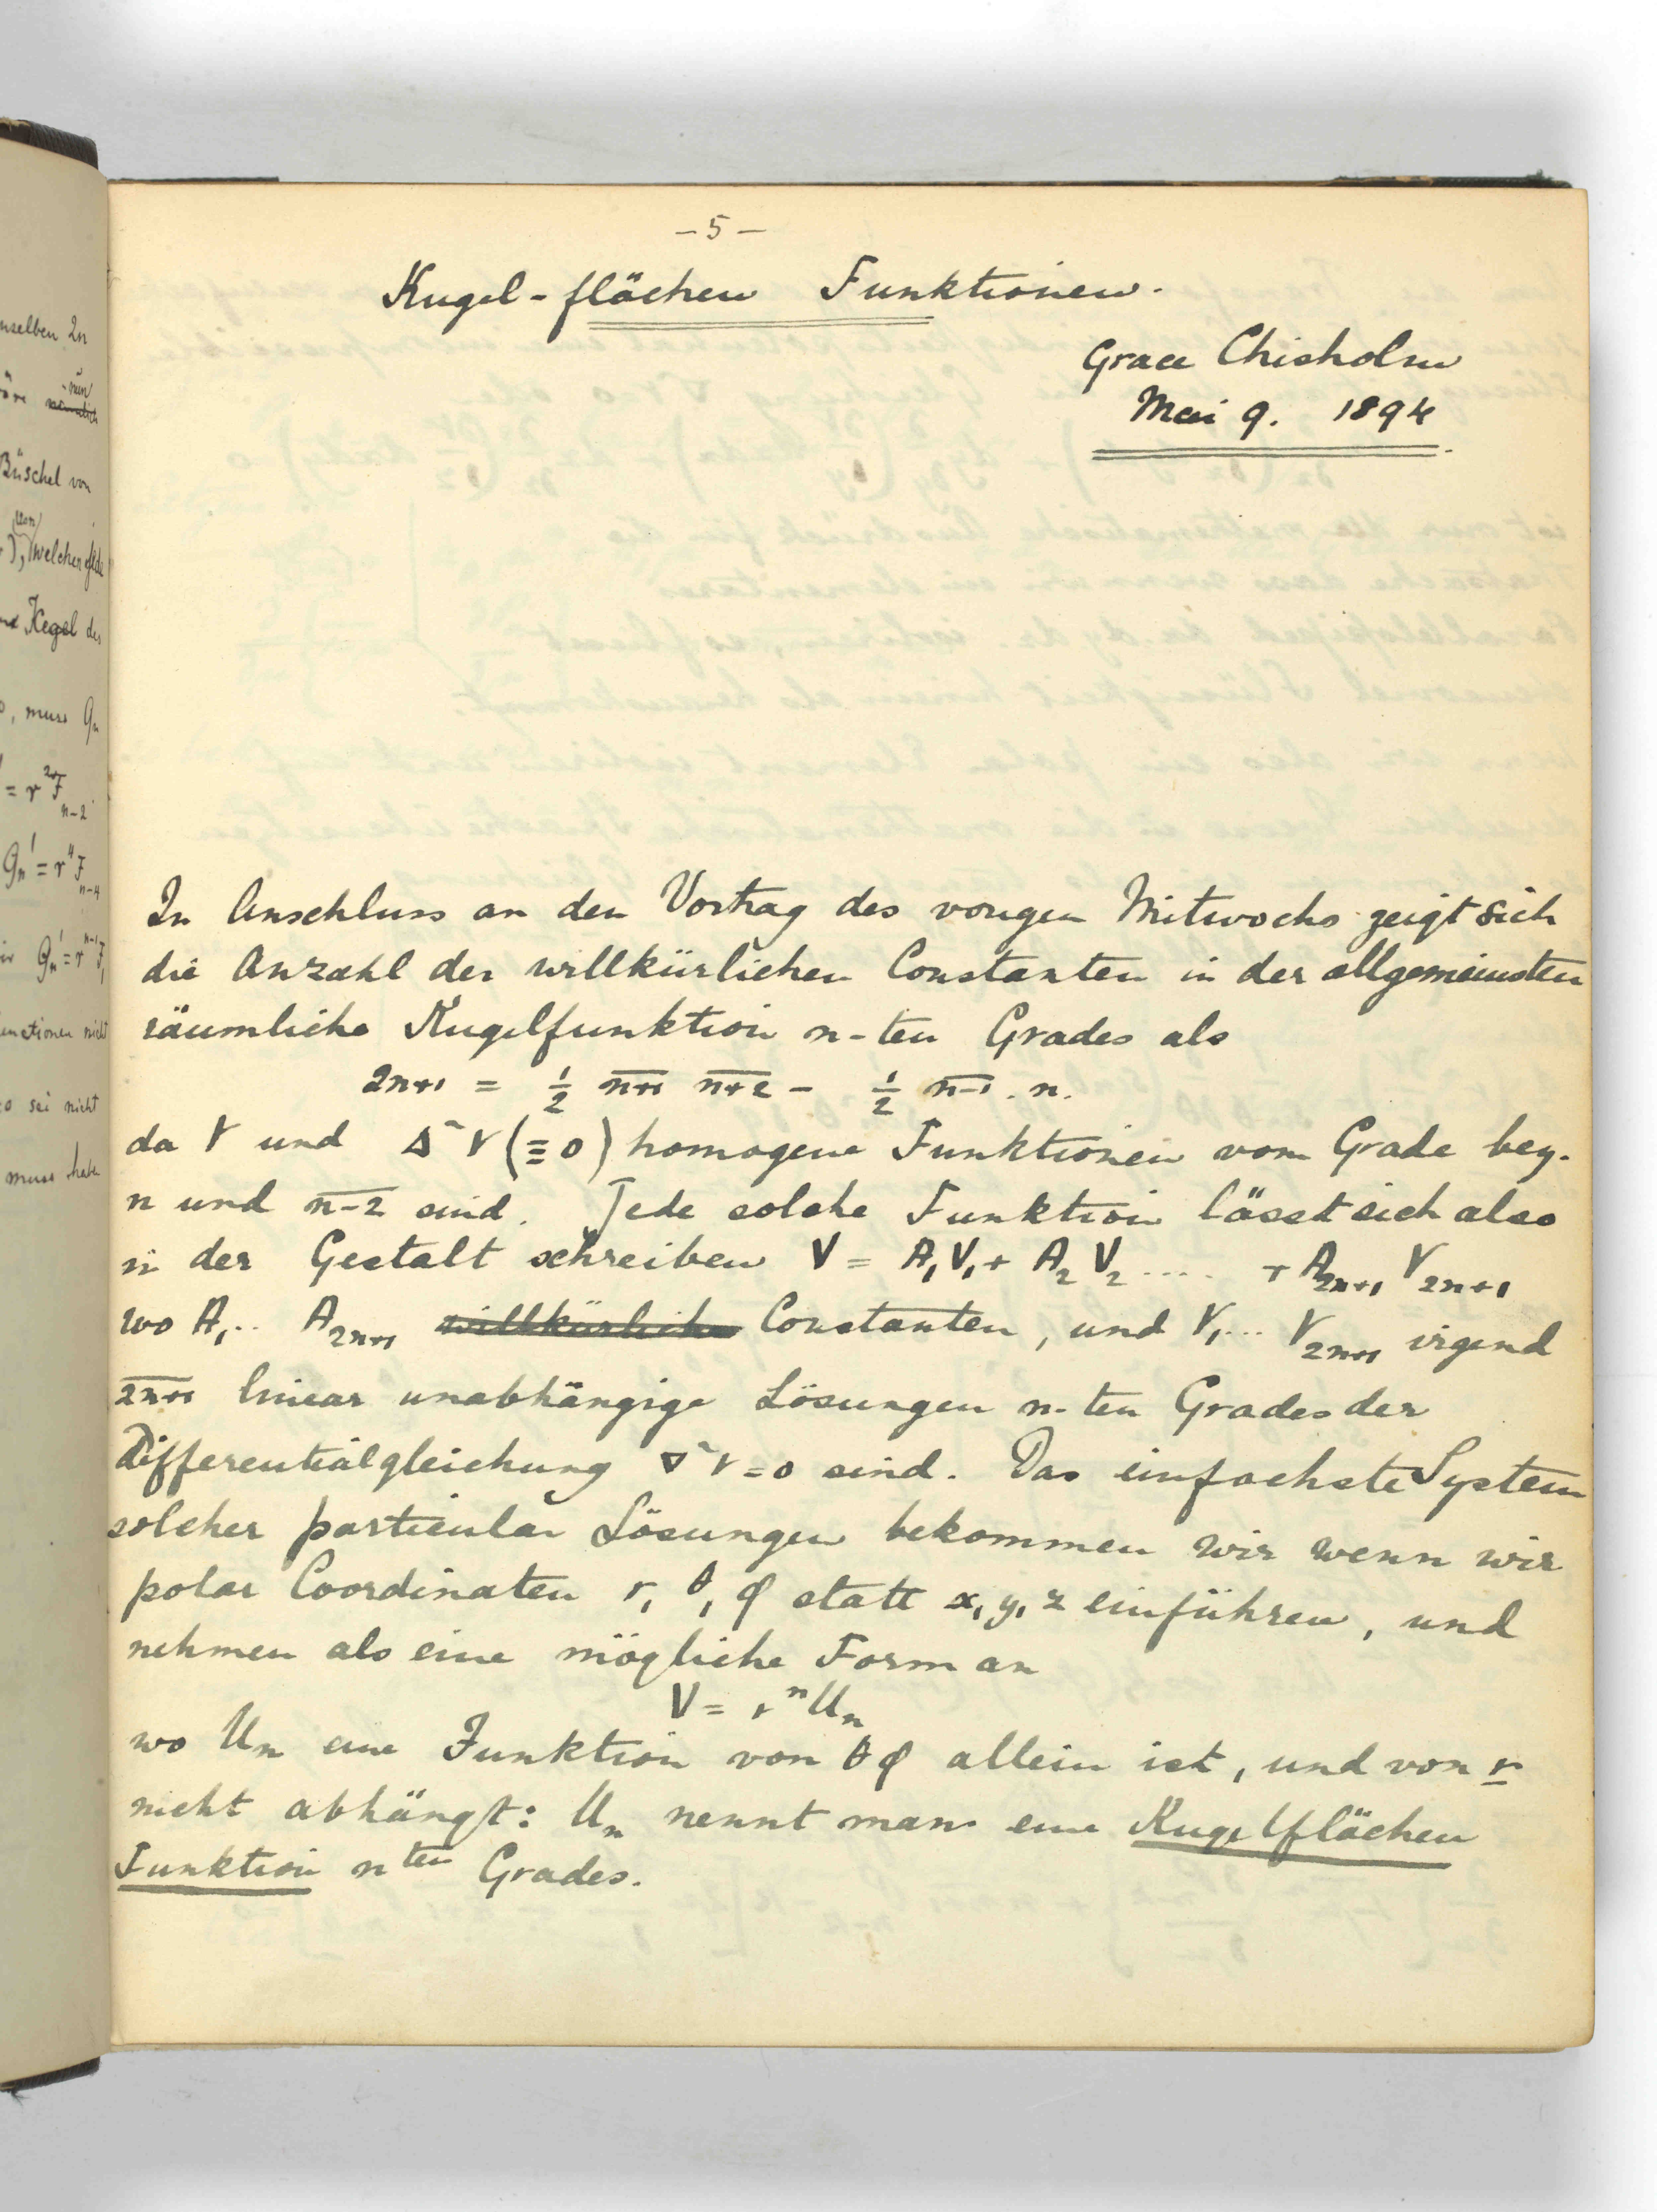 nselben 2n
nun
Büschel von
von
), welchen
Kegel des
, muss Gn
= r² F n-2
Gn' = r⁴ F n-4
Gn' = r^{n-1} F,
unctionen nicht
o sei nicht
muss habe
– 5 –
Kugel-flächen Funktionen.
Grace Chisholm
Mai 9. 1894
In Anschluss an den Vortrag des vorigen Mitwochs zeigt sich
die Anzahl der willkürlichen Constanten in der allgemeinsten
räumliche Kugelfunktion n-ten Grades als
2n+1 = ½ n̅+̅1̅ n̅+̅2̅ – ½ n̅-̅1̅ . n.
da V und ∆² V (≡ 0) homogene Funktionen vom Grade bez.
n und n̅-̅2̅ sind. Jede solche Funktion lässt sich also
in der Gestalt schreiben V = A₁V₁ + A₂V₂ .... + A₂ₙ₊₁ V₂ₙ₊₁
wo A₁.. A₂ₙ₊₁ willkürliche Constanten, und V₁... V₂ₙ₊₁ irgend
2̅n̅+̅1̅ linear unabhängige Lösungen n-ten Grades der
Differentialgleichung ∇² V = 0 sind. Das einfachste System
solcher particular Lösungen bekommen wir wenn wir
polar Coordinaten r, θ, φ statt x, y, z einführen, und
nehmen als eine mögliche Form an
V = rⁿ Uₙ
wo Uₙ eine Funktion von θ φ allein ist, und von r
nicht abhängt: Uₙ nennt man eine Kugelflächen
Funktion n ten Grades.